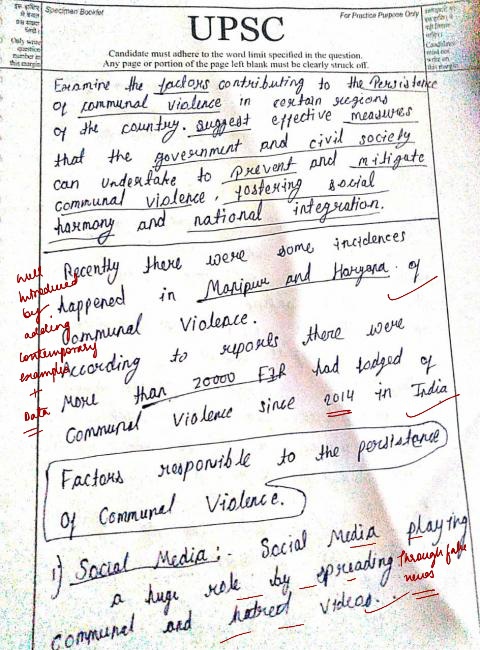 Specimen Booklet
For Practice Purpose Only
UPSC
Candidate must adhere to the word limit specified in the question.
Any page or portion of the page left blank must be clearly struck off.
Only write
question
number in
this margin
Candidates
must not
write on
this margin
Examine the factors contributing to the Persistence
of communal violence in certain regions
of the country. Suggest effective measures
that the government and civil society
can undertake to Prevent and mitigate
communal violence, fostering social
harmony and national integration.
Recently there were some incidences
happened in Manipur and Haryana of
Communal Violence.
According to reports there were
more than 20000 FIR had lodged of
Communal Violence since 2014 in India
well
Introduced
by
adding
contemporary
examples
+
Data
Factors responsible to the persistance
Of Communal Violence.
i) Social Media :- Social Media playing
a huge role by spreading through fake
news
communal and hatred videos.